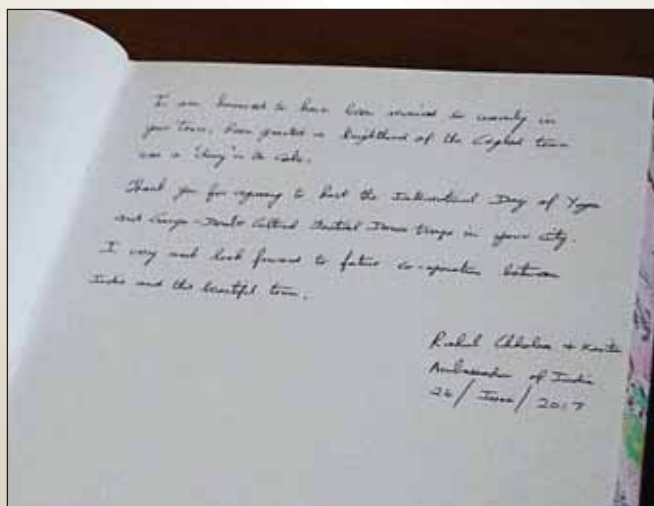 I am honoured to have been invited so warmly in
your town. Been granted a knighthood of the
was a "cherry" on the cake.
Thank you for agreeing to host the International Day of Yoga
and Cultural Martial Dance Troupe in your city.
I very much look forward to future co-operation between
India and this beautiful town.
Rahul
Ambassador of India
26/June/2017